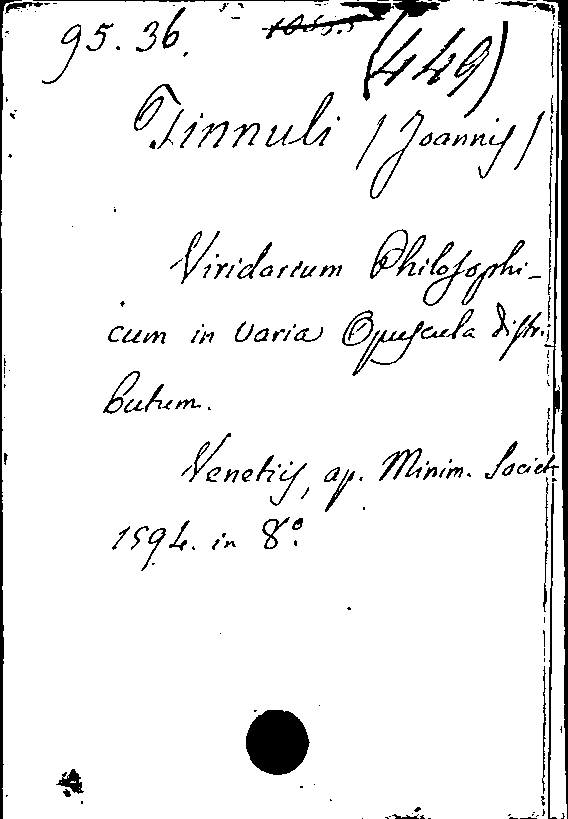 95.36.
(449)
Tinnuli / Joannis /
Viridarium Philosophi-
cum in varia Opuscula distri-
butum.
Venetijs, ap. Minim. Societ
1594. in 8º.